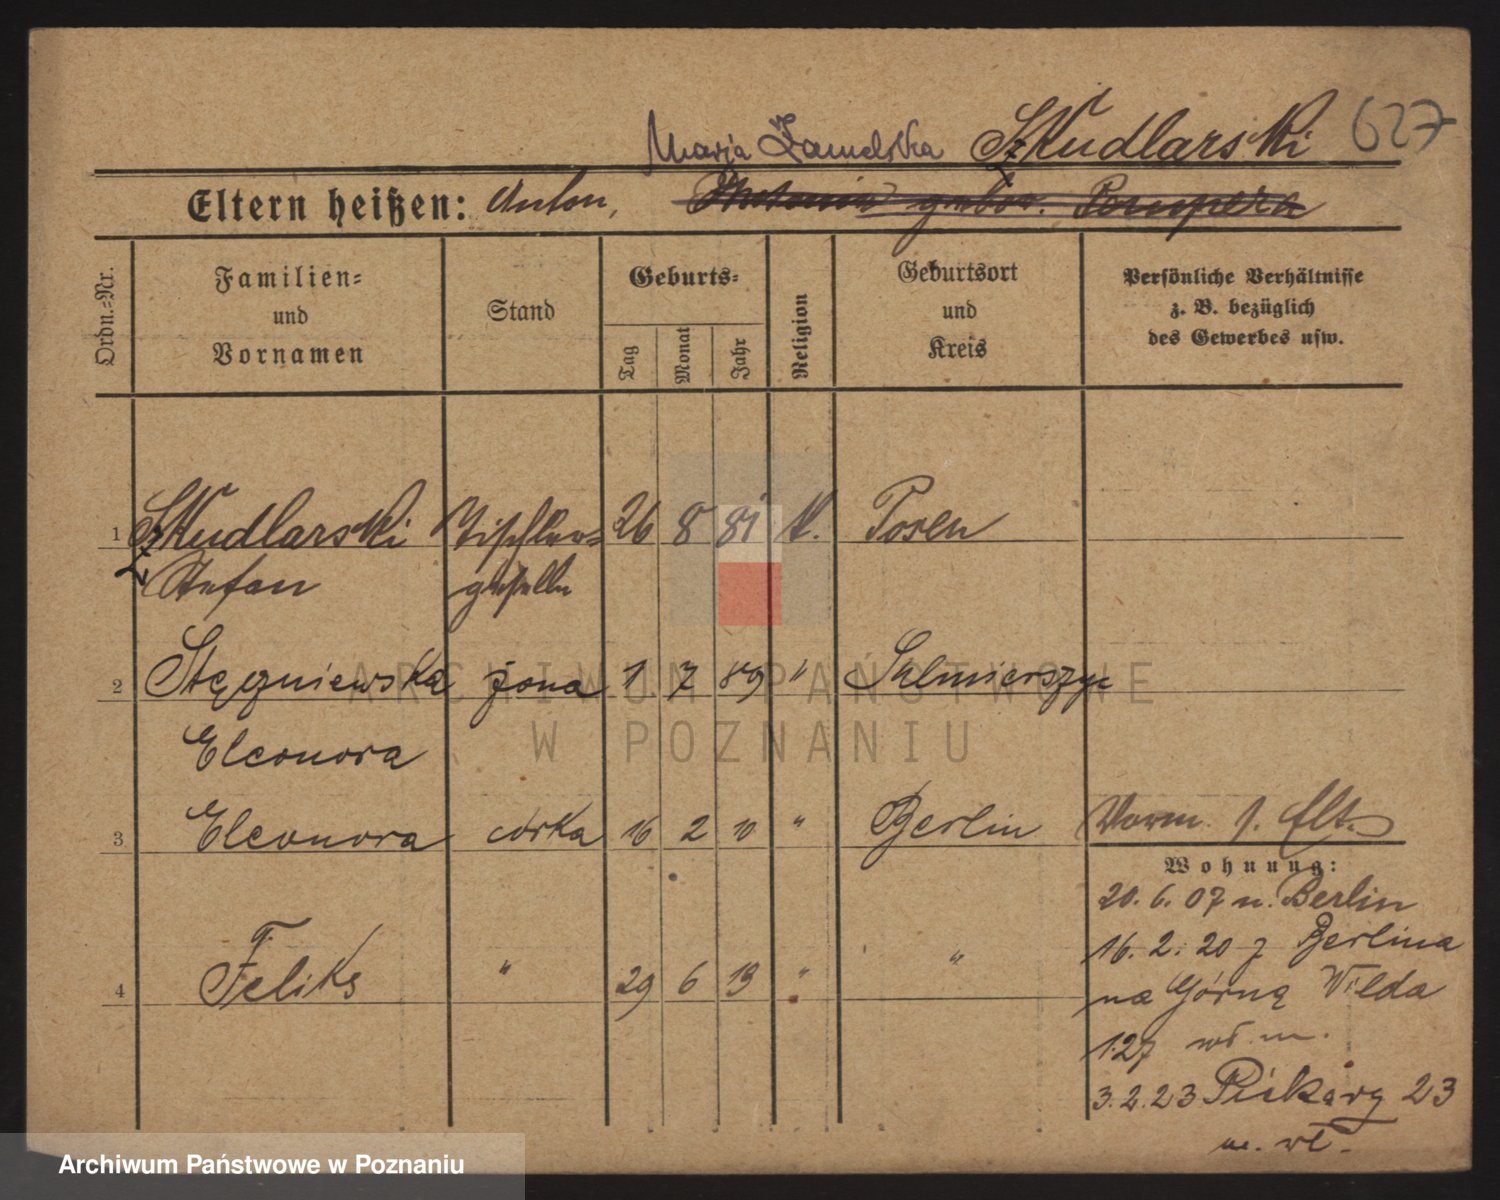 Marja Szkudlarski 627
Eltern heißen: Anton, geb.
Ordn.-Nr.
Familien-
und
Vornamen
Stand
Geburts-
Tag
Monat
Jahr
Religion
Geburtsort
und
Kreis
Persönliche Verhältnisse
z. B. bezüglich
des Gewerbes usw.
1 Szkudlarski Tischler- 26 8 81 k. Posen
Stefan geselle
2 Stęgniewska żona 1 7 89 " Sulmierszyc
Eleonora
3 Eleonora córka 16 2 10 " Berlin Vorm. s. Elt.
Wohnung:
20. 6. 07 n. Berlin
16. 2. 20 z Berlina
4 Feliks " 29 6 13 " "
na Górną Wilda
127 wł. m.
3. 2. 23 Piekary 23
m. wł.
ARCHIWUM PAŃSTWOWE
W POZNANIU
Archiwum Państwowe w Poznaniu